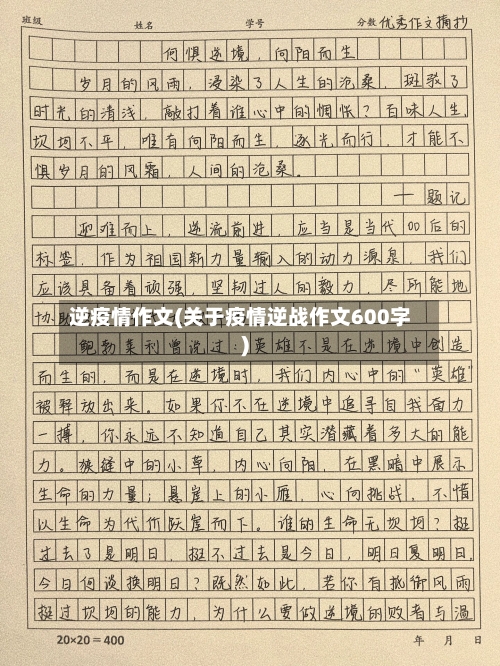 班级 姓名 学号 分数 优秀作文摘抄
何惧逆境，向阳而生
岁月的风雨，浸染了人生的沧桑，斑驳了
时光的清浅，敲打着谁心中的惆怅？百味人生，
坎坷不平，唯有向阳而生，逐光而行，才能不
惧岁月的风霜，人间的沧桑。
——题记
迎难而上，逆流前进，应当是当代00后的
标签，作为祖国新力量输入的动力源泉，我们
应该具备着顽强，坚韧过人的毅力，尽所能地
协助
逆疫情作文(关于疫情逆战作文600字
)
鲍勃莱利曾说过：英雄不是在逆境中创造
而生的，而是在逆境时，我们内心中的“英雄”
被释放出来。如果你不在逆境中追寻自我奋力
一搏，你永远不知道自己其实潜藏着多大的能
力。狭缝中的小草，内心向阳，在黑暗中展示
生命的力量；悬崖上的小雁，心向挑战，不惜
以生命为代价跃崖而下。谁的生命无坎坷？挺
过去了是明日，挺不过去是今日，明日复明日，
今日何谈换明日？既然如此，若你有抵御风雨
挺过坎坷的能力，为什么要做逆境的败者与温
20×20＝400 年 月 日